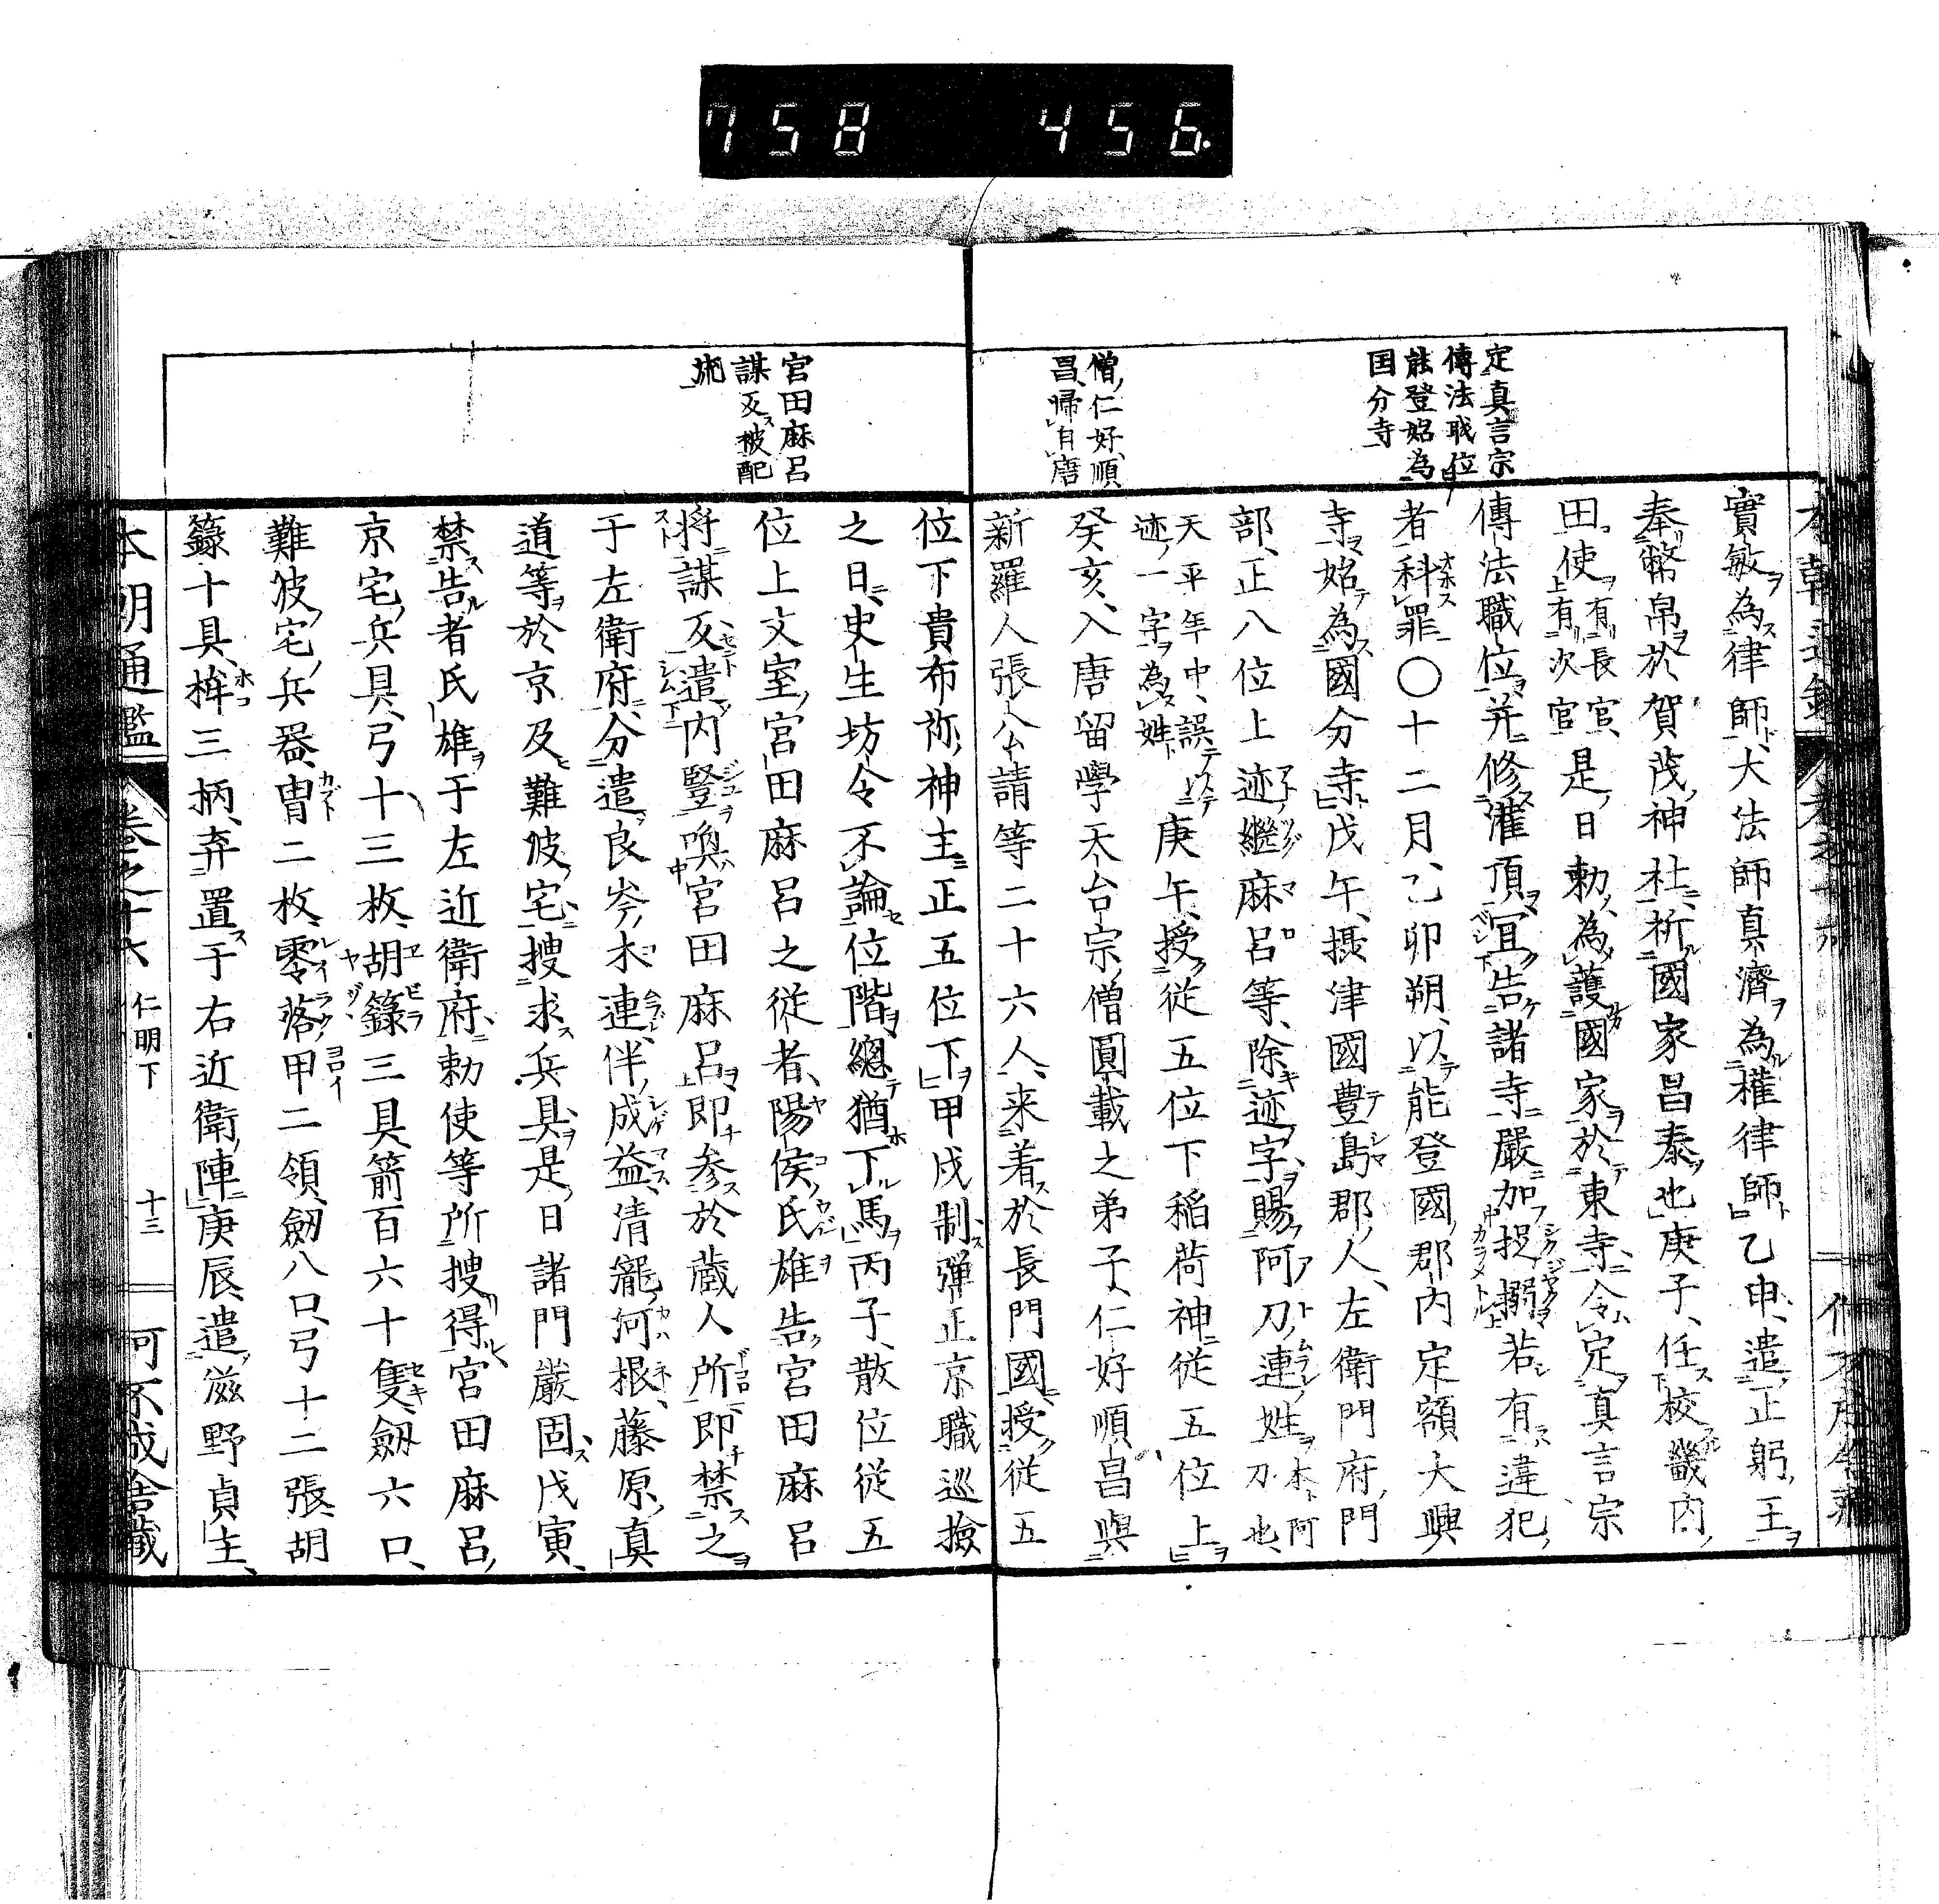 758 456.
定真言宗
傳法職位
能登始為
国分寺
僧仁好順
昌歸自唐
宮田麻呂
謀反被配
流
實敏為律師大法師真濟為權律師乙申遣正躬王
奉幣帛於賀茂神社祈國家昌泰也庚子任校畿内
田使有長官有次官是日勅為護國家於東寺令定真言宗
傳法職位并修灌頂宜告諸寺嚴加捉搦若有違犯
者科罪〇十二月乙卯朔以能登國郡内定額大興
寺始為國分寺戊午摂津國豊島郡人左衛門府門
部正八位上迹継麻呂等除迹字賜阿刀連姓本阿刀也
天平年中誤迹一字為姓庚午授従五位下稲荷神従五位上
癸亥入唐留學天台宗僧圓載之弟子仁好順昌與
新羅人張公靖等二十六人来着於長門國授従五
位下貴布祢神主正五位下甲戌制弾正京職巡撿
之日史生坊令不論位階總猶下馬丙子散位従五
位上文室宮田麻呂之従者陽侯氏雄告宮田麻呂
将謀反遣内豎喚宮田麻呂即参於蔵人所即禁之
于左衛府分遣良岑木連伴成益清瀧河根藤原真
道等於京及難波宅搜求兵具是日諸門嚴固戊寅
禁告者氏雄于左近衛府勅使等所搜得宮田麻呂
京宅兵具弓十三枚胡籙三具箭百六十隻劔六口
難波宅兵器冑二枚零落甲二領劔八口弓十二張胡
籙十具桙三柄弃置于右近衛陣庚辰遣滋野貞主
本朝通鑑 卷之十六 仁明下 十三 何不成舎藏